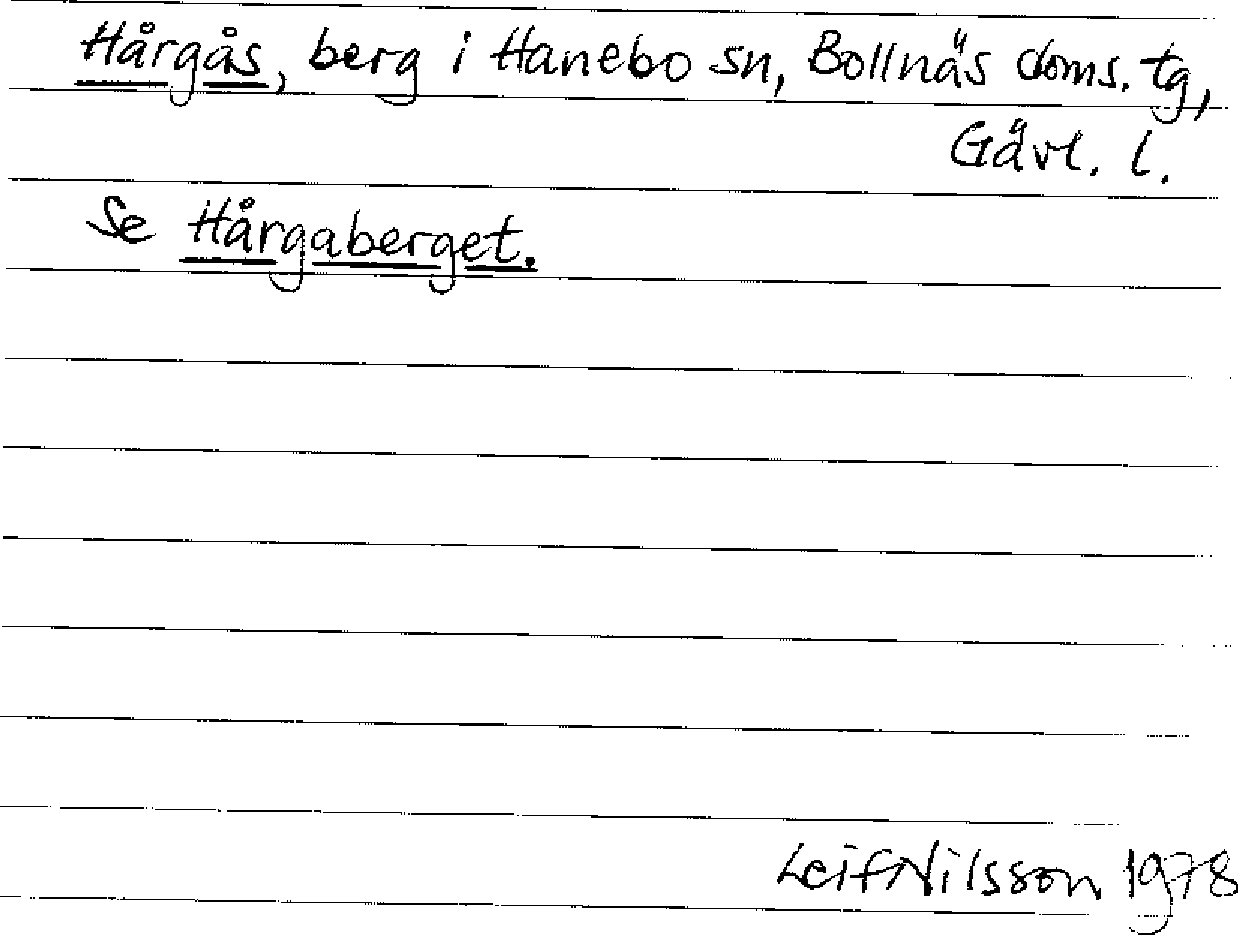 Hårgås, berg i Hanebo sn, Bollnäs doms. tg,
Gävl. l.
Se Hårgaberget.
Leif Nilsson 1978